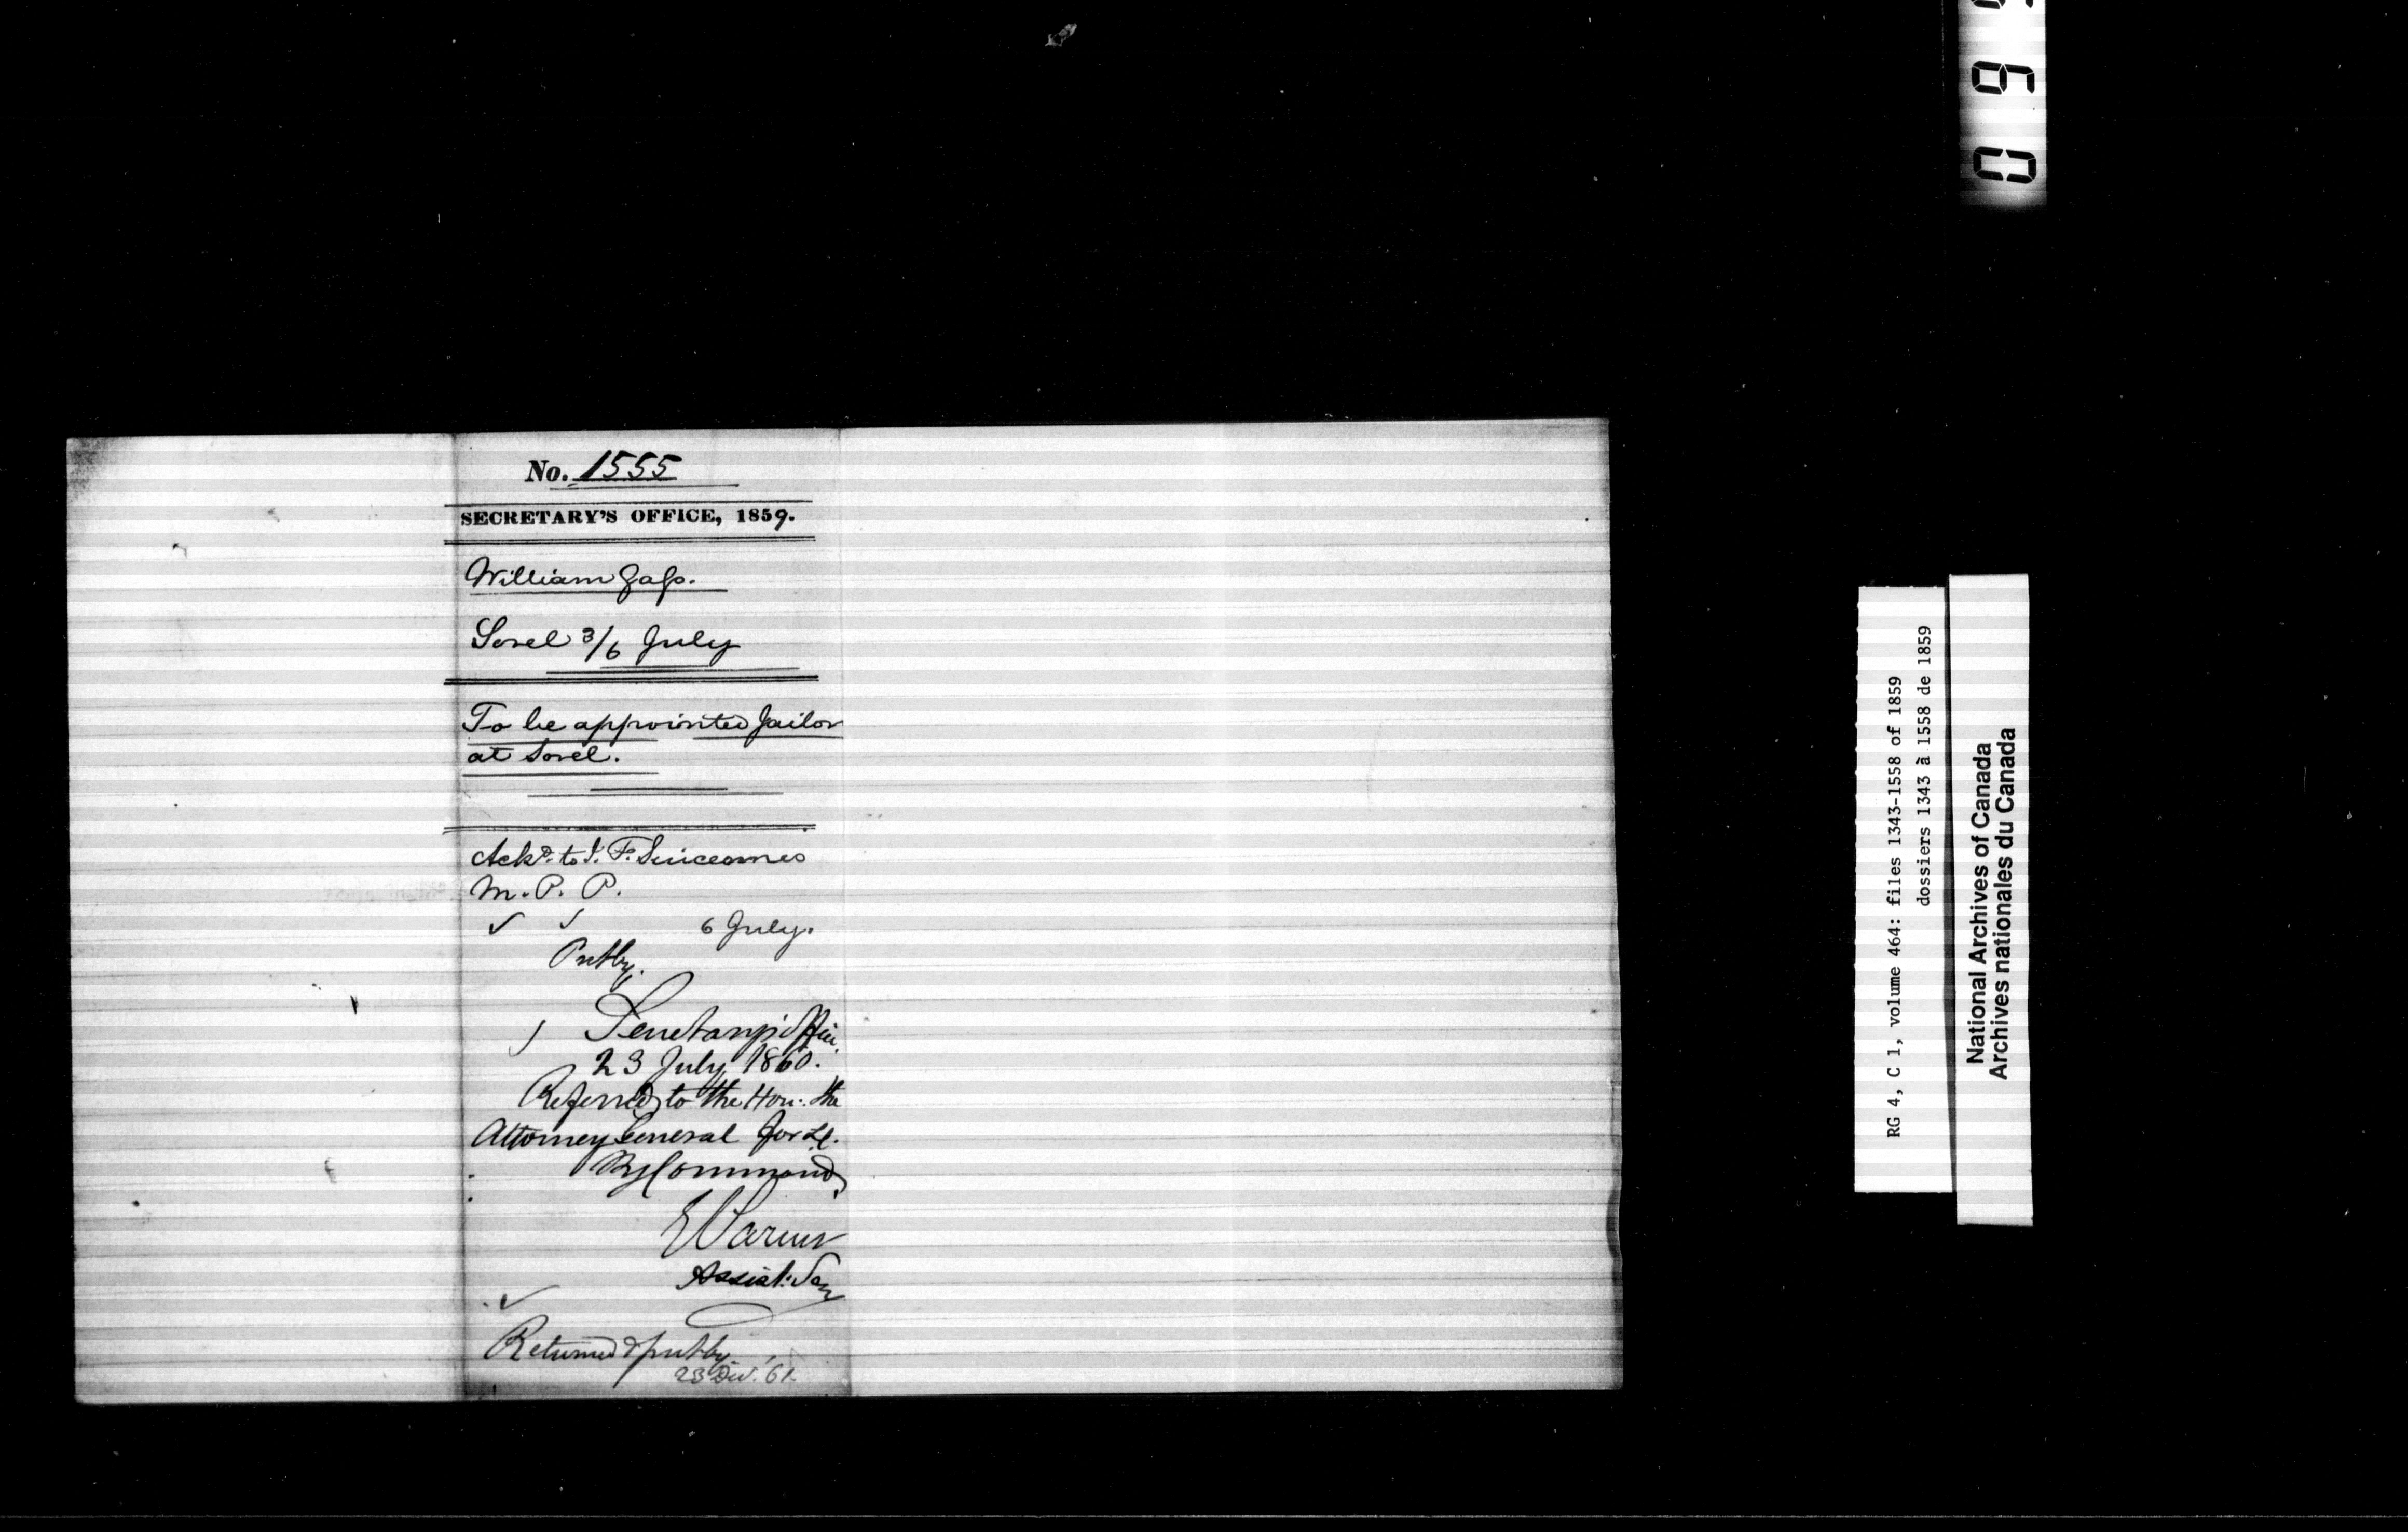 No. 1555
SECRETARY'S OFFICE, 1859.
William
Sorel 3/6 July
To be appointed Jailor
at Sorel.
Ackd. to J. F. Sincennes
M. P. P.
6 July.
Put by.
Secretary's Office.
23 July 1860.
Referred to the Hon: the
Attorney General for L.C.
By Command,
Assist: Secy
Returned & put by
23 Dec. '61.
RG 4, C 1, volume 464: files 1343-1558 of 1859
dossiers 1343 à 1558 de 1859
National Archives of Canada
Archives nationales du Canada